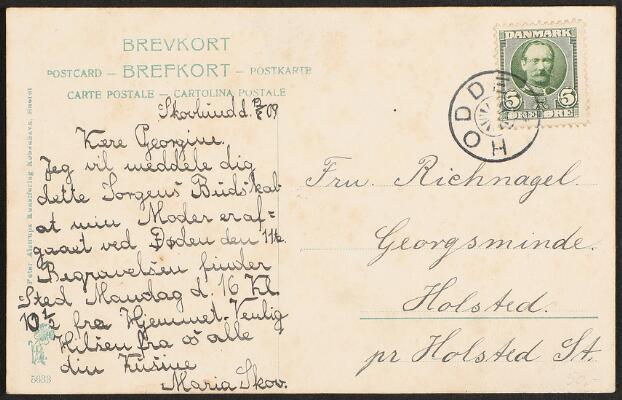 BREVKORT
POSTCARD — BREFKORT — POSTKARTE
CARTE POSTALE — CARTOLINA POSTALE
Skovlund d. 09
Kære Georgine.
Jeg vil meddele dig
dette Sorgens Budskab
at min Moder er af-
gaaet ved Døden den 11te.
Begravelsen finder
Sted Mandag d. 16 Kl
10½ fra Hjemmet. Venlig
Hilsen fra os alle
din Kusine
Maria Skov.
5633
DANMARK
5 5
ØRE ØRE
HODDE
Fru. Richnagel.
Georgsminde.
Holsted.
pr Holsted St.
Peter Alstrups Kunstforlag København.